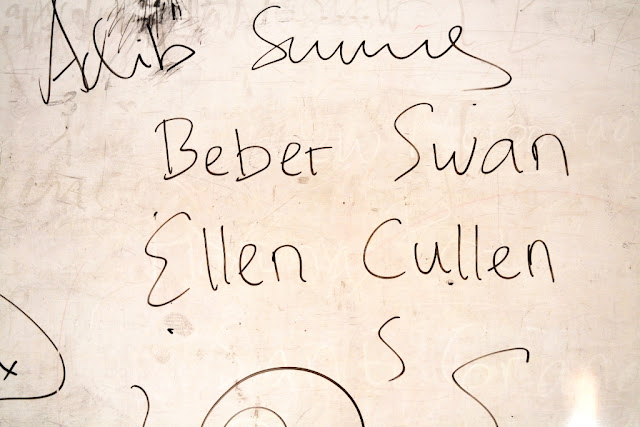 Adib
Beber Swan
Ellen Cullen
S